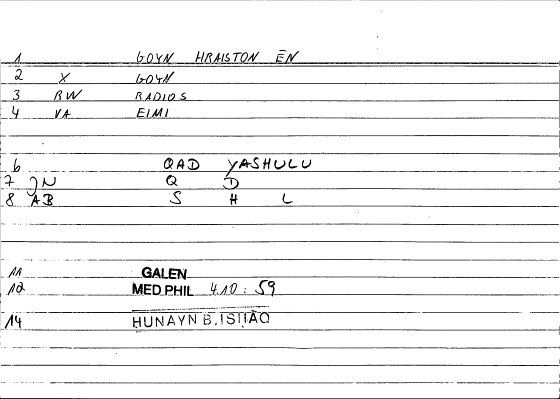 1 GOYN HRAISTON ĒN
2 X GOYN
3 RW RADIOS
4 VA EIMI
6 QAD YASHULU
7 JN Q D
8 AB S H L
11 GALEN
12 MED PHIL 4.10 : 59
14 HUNAYN B. ISḤĀQ